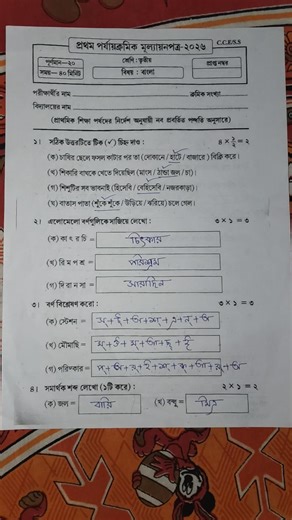 প্রথম পর্যায়ক্রমিক মূল্যায়নপত্র-২০২৬
C.C.E/S.S
পূর্ণমান—২০
সময়— ৪০ মিনিট
শ্রেণি : তৃতীয়
বিষয় : বাংলা
প্রাপ্ত নম্বর
পরীক্ষার্থীর নাম
ক্রমিক সংখ্যা
বিদ্যালয়ের নাম
(প্রাথমিক শিক্ষা পর্ষদের নির্দেশ অনুযায়ী নব প্রবর্তিত পদ্ধতি অনুসারে)
১। সঠিক উত্তরটিতে টিক (✓) চিহ্ন দাও : ৪ × ১/২ = ২
(ক) চাষির ছেলে ফসল কাটার পর তা (দোকানে / হাটে / বাজারে) বিক্রি করে।
(খ) শিকারি বাঘকে খেতে দিয়েছিল (মাংস / ঠান্ডা জল / চা)।
(গ) শিশুটির সব ভাবনাই (হিসেবি / বেহিসেবি / নজরকাড়া)।
(ঘ) বাতাস পাতা (শুঁকে শুঁকে / উড়িয়ে / ঝরিয়ে) চলে গেল।
২। এলোমেলো বর্ণগুলিকে সাজিয়ে লেখো : ৩ × ১ = ৩
(ক) কা ৎ র চি = চিৎকার
(খ) রি ম প শ্র = পরিশ্রম
(গ) দি রা ন সা = সারাদিন
৩। বর্ণ বিশ্লেষণ করো : ৩ × ১ = ৩
(ক) স্টেশন =
(খ) মৌমাছি = ম্ + ঔ + ম্ + আ + ছ্ + ই
(গ) পরিষ্কার = প্ + অ + র্ + ই + ষ্ + ক্ + আ + র্ + অ
৪। সমার্থক শব্দ লেখো (১টি করে) : ২ × ১ = ২
(ক) জল = বারি (খ) বন্ধু = মিত্র